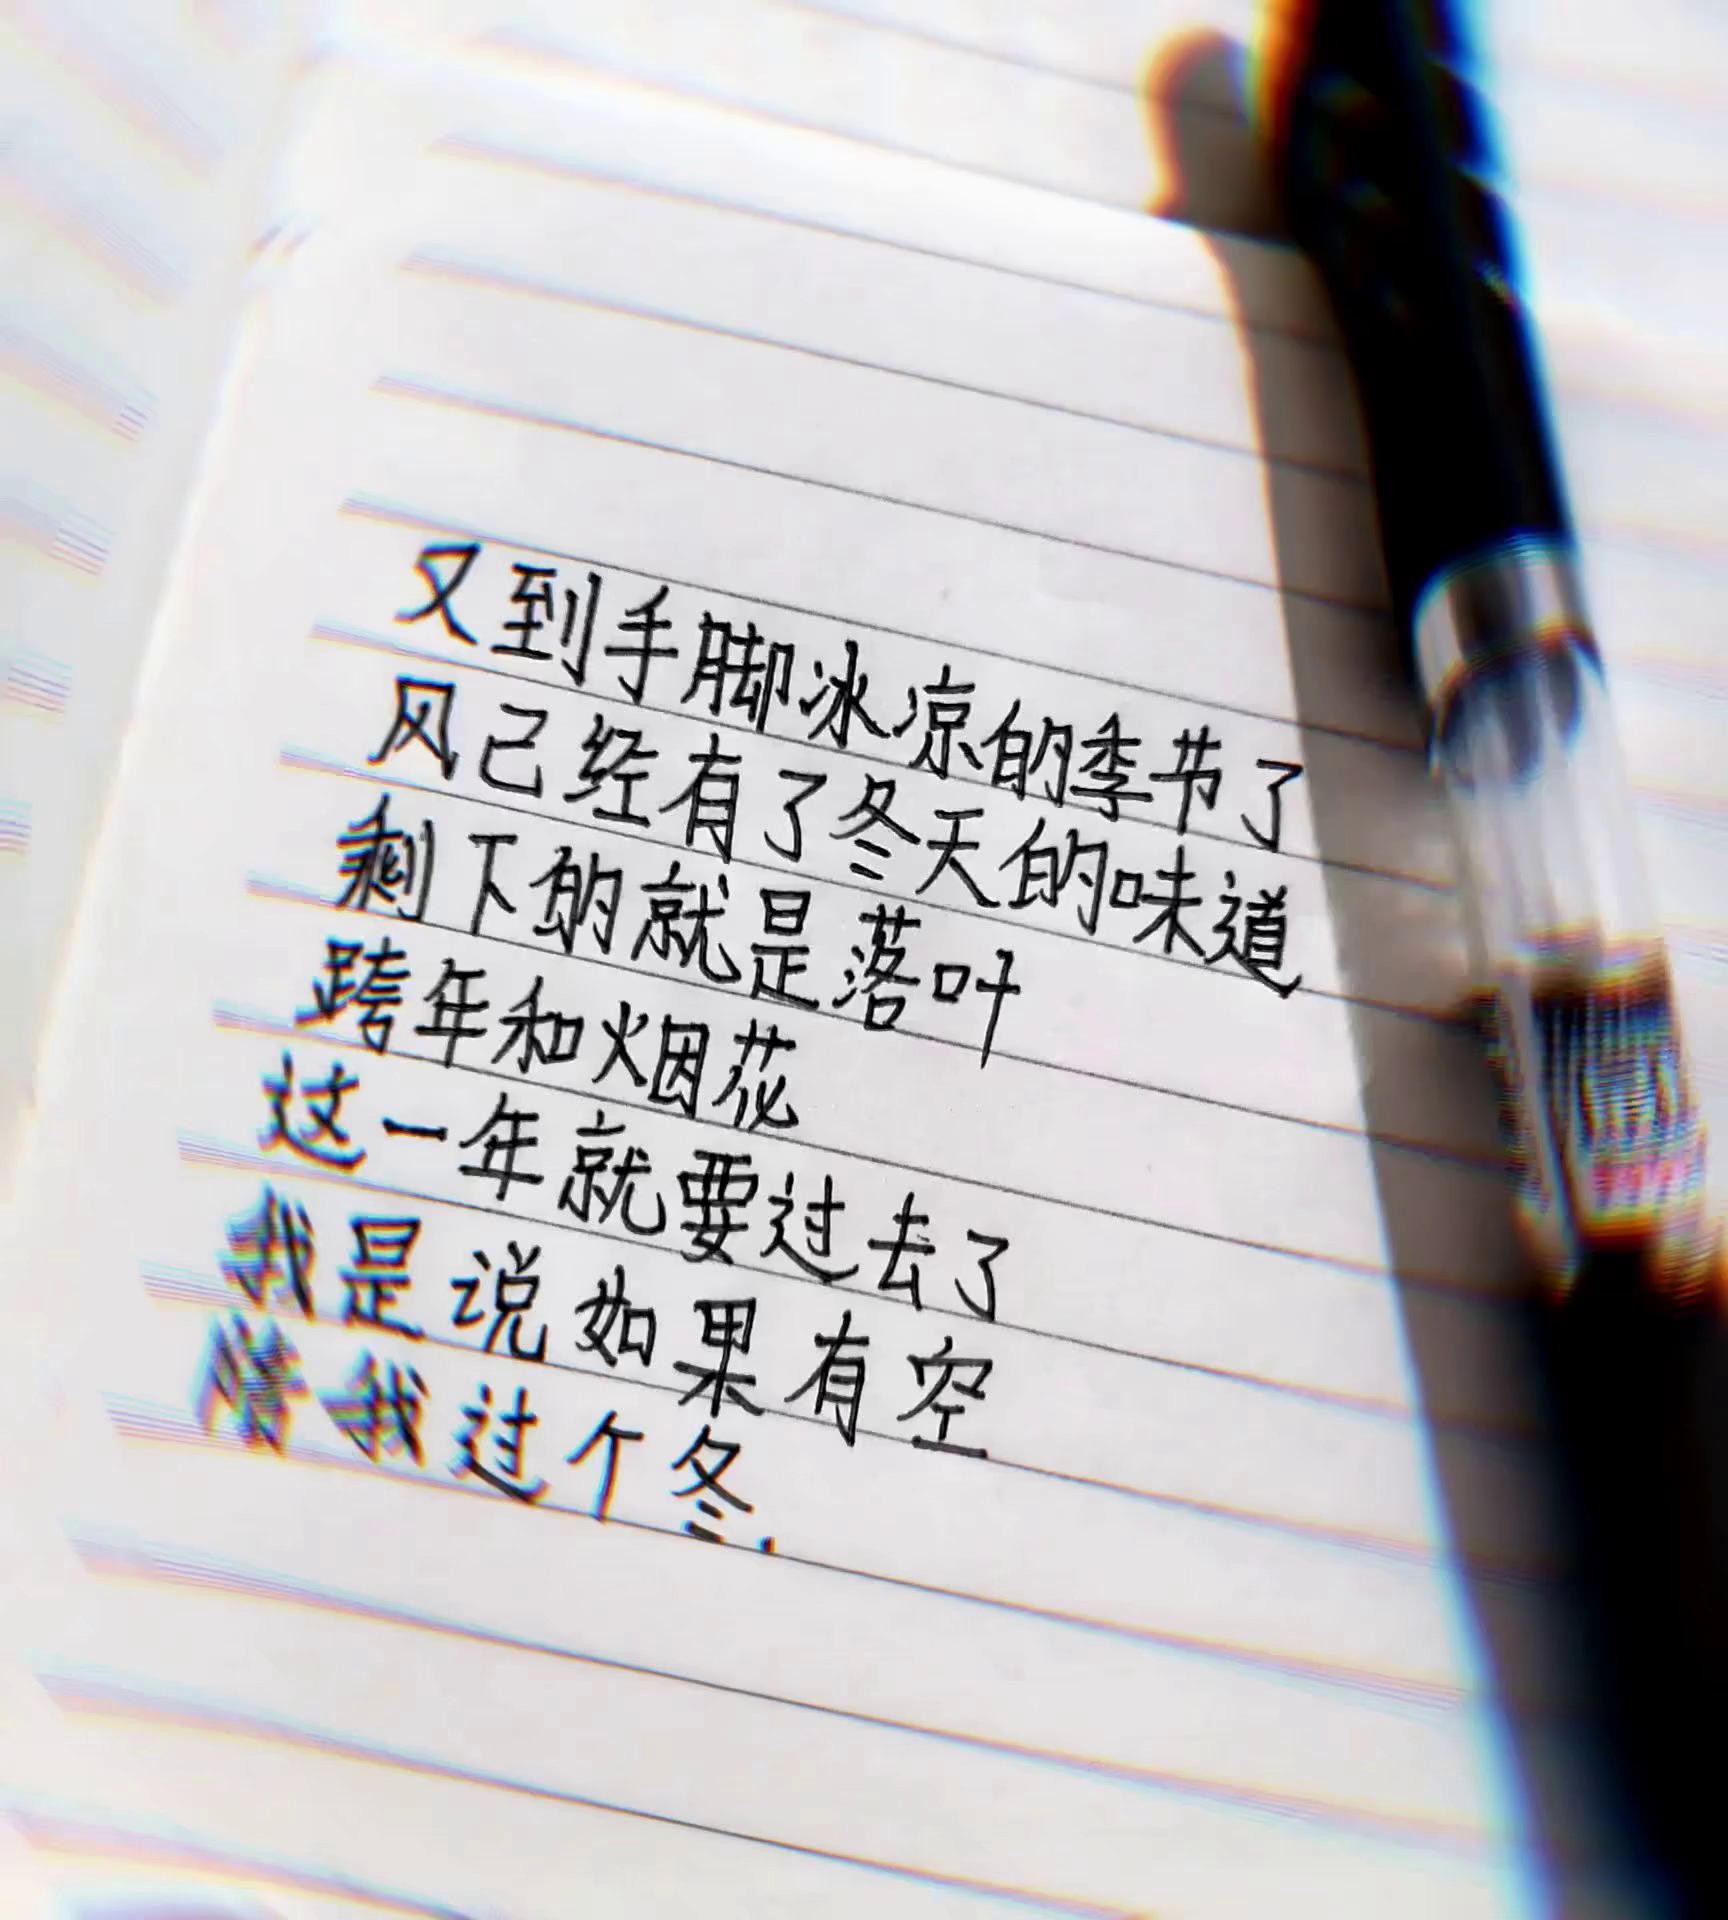 又到手脚冰凉的季节了
风已经有了冬天的味道
剩下的就是落叶
跨年和烟花
这一年就要过去了
我是说如果有空
陪我过个冬.